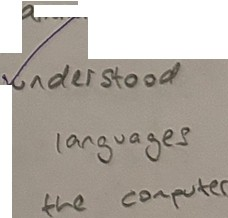 understood
languages
the computer